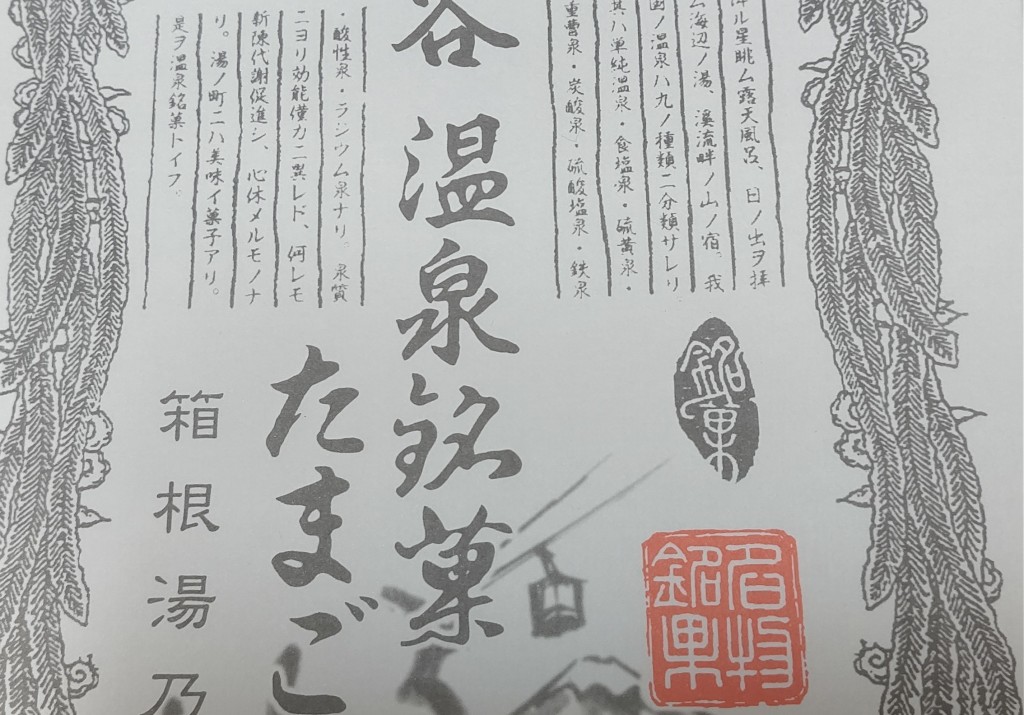 ル星眺ム露天風呂、日ノ出ヲ拝
ム海辺ノ湯、渓流畔ノ山ノ宿、我
国ノ温泉ハ九ノ種類ニ分類サレリ
其ハ単純温泉・食塩泉・硫黄泉・
重曹泉・炭酸泉・硫酸塩泉・鉄泉
谷温泉銘菓
たまご
・酸性泉・ラジウム泉ナリ。泉質
ニヨリ効能僅カニ異レド、何レモ
新陳代謝促進シ、心休メルモノナ
リ。湯ノ町ニハ美味イ菓子アリ。
是ヲ温泉銘菓トイフ。
箱根湯乃
銘菓
名物
銘菓